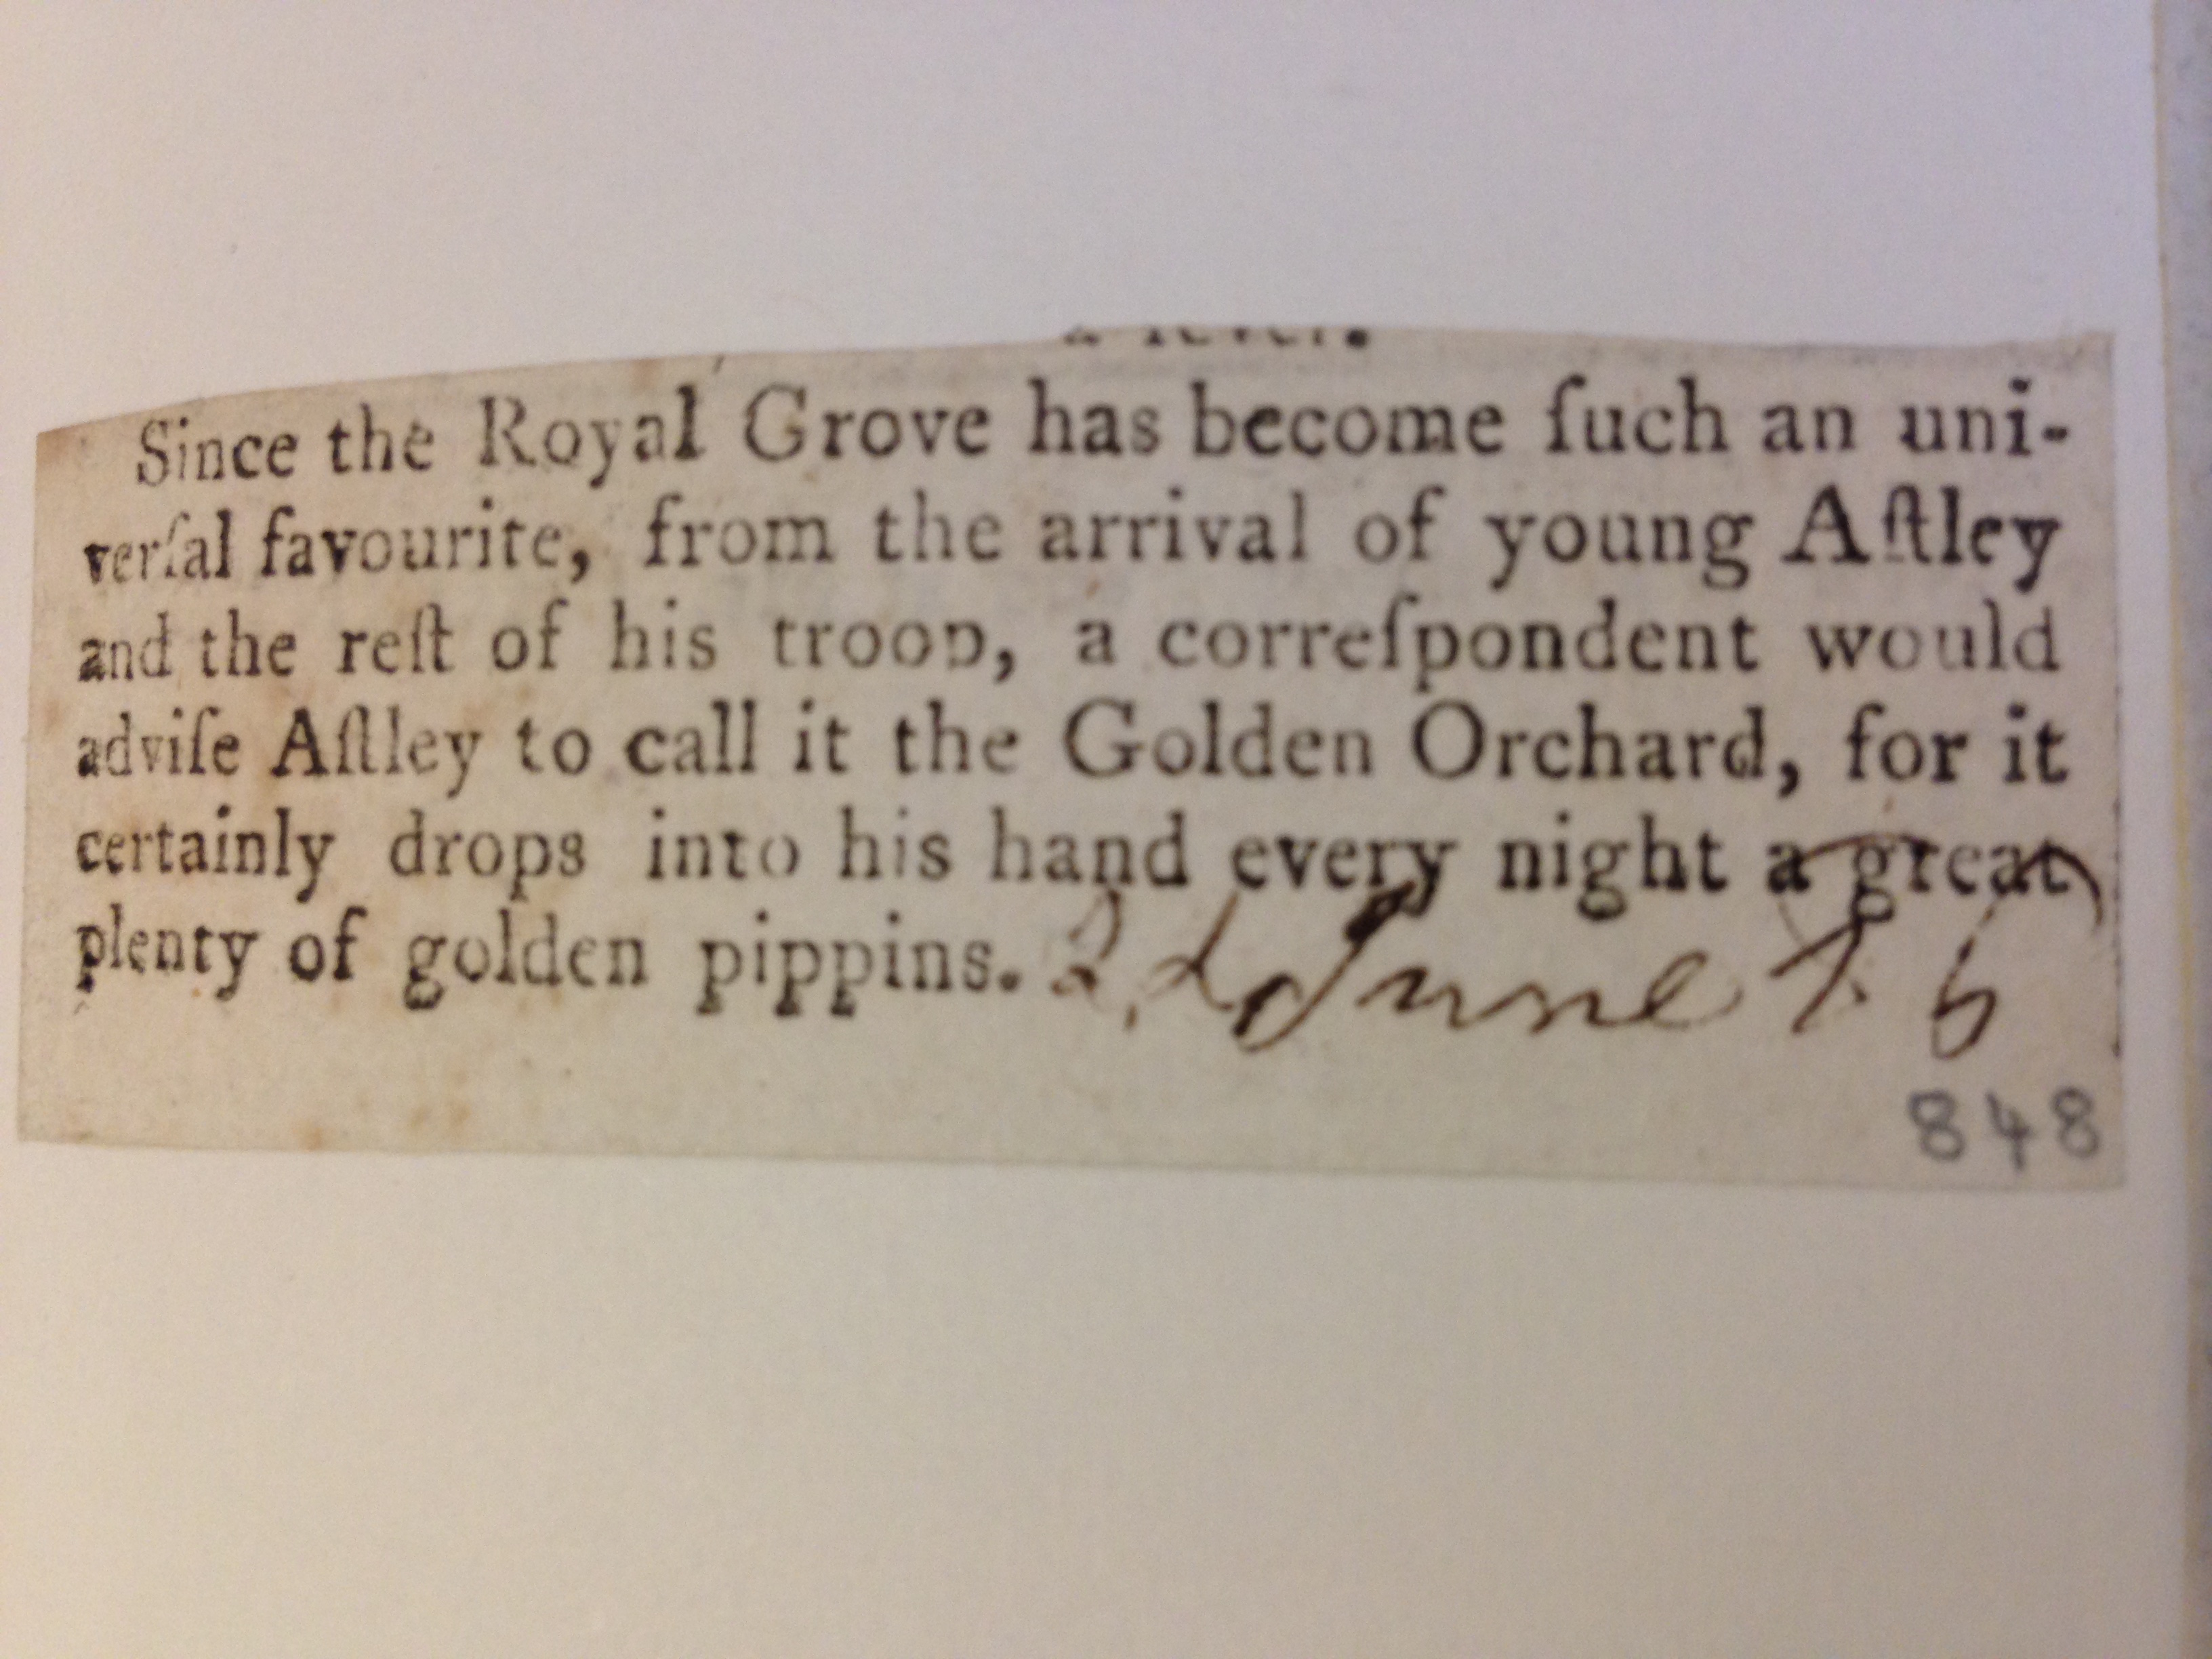 Since the Royal Grove has become ſuch an uni-
verſal favourite, from the arrival of young Aſtley
and the reſt of his troop, a correſpondent would
adviſe Aſtley to call it the Golden Orchard, for it
certainly drops into his hand every night a great
plenty of golden pippins. June
848